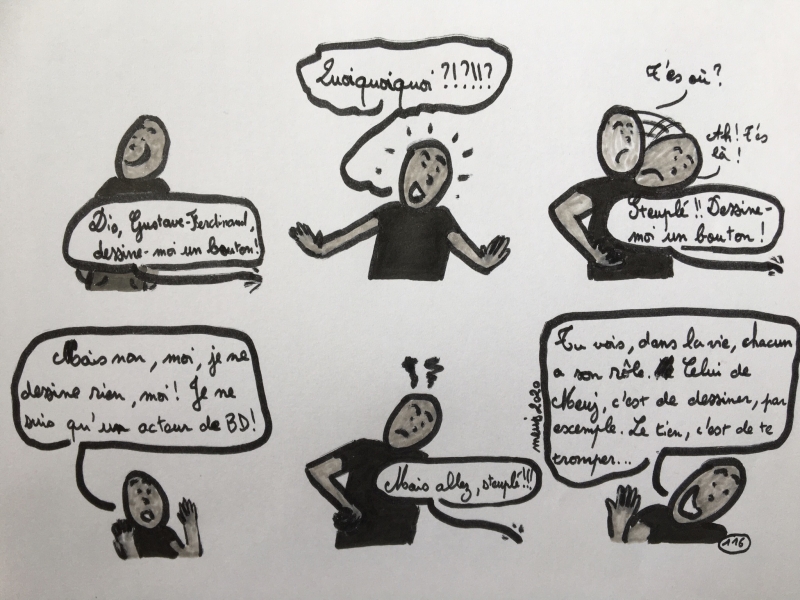 Dis, Gustave-Ferdinand,
dessine-moi un bouton!
Quoiquoiquoi ?!?!!?
T'es où?
Ah! T'es
là!
Steuplé!! Dessine-
moi un bouton!
Mais non, moi, je ne
dessine rien, moi! Je ne
suis qu'un acteur de BD!
Mais allez, steuplé!!!
Tu vois, dans la vie, chacun
a son rôle. Celui de
Meuj, c'est de dessiner, par
exemple. Le tien, c'est de te
tromper...
meuj2020
116